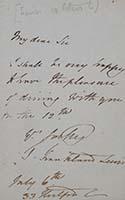 My dear Sir
I shall be very happy
to have the pleasure
of dining with you
on the 12th
Yrs
T. Frankland Lewis
July 6th